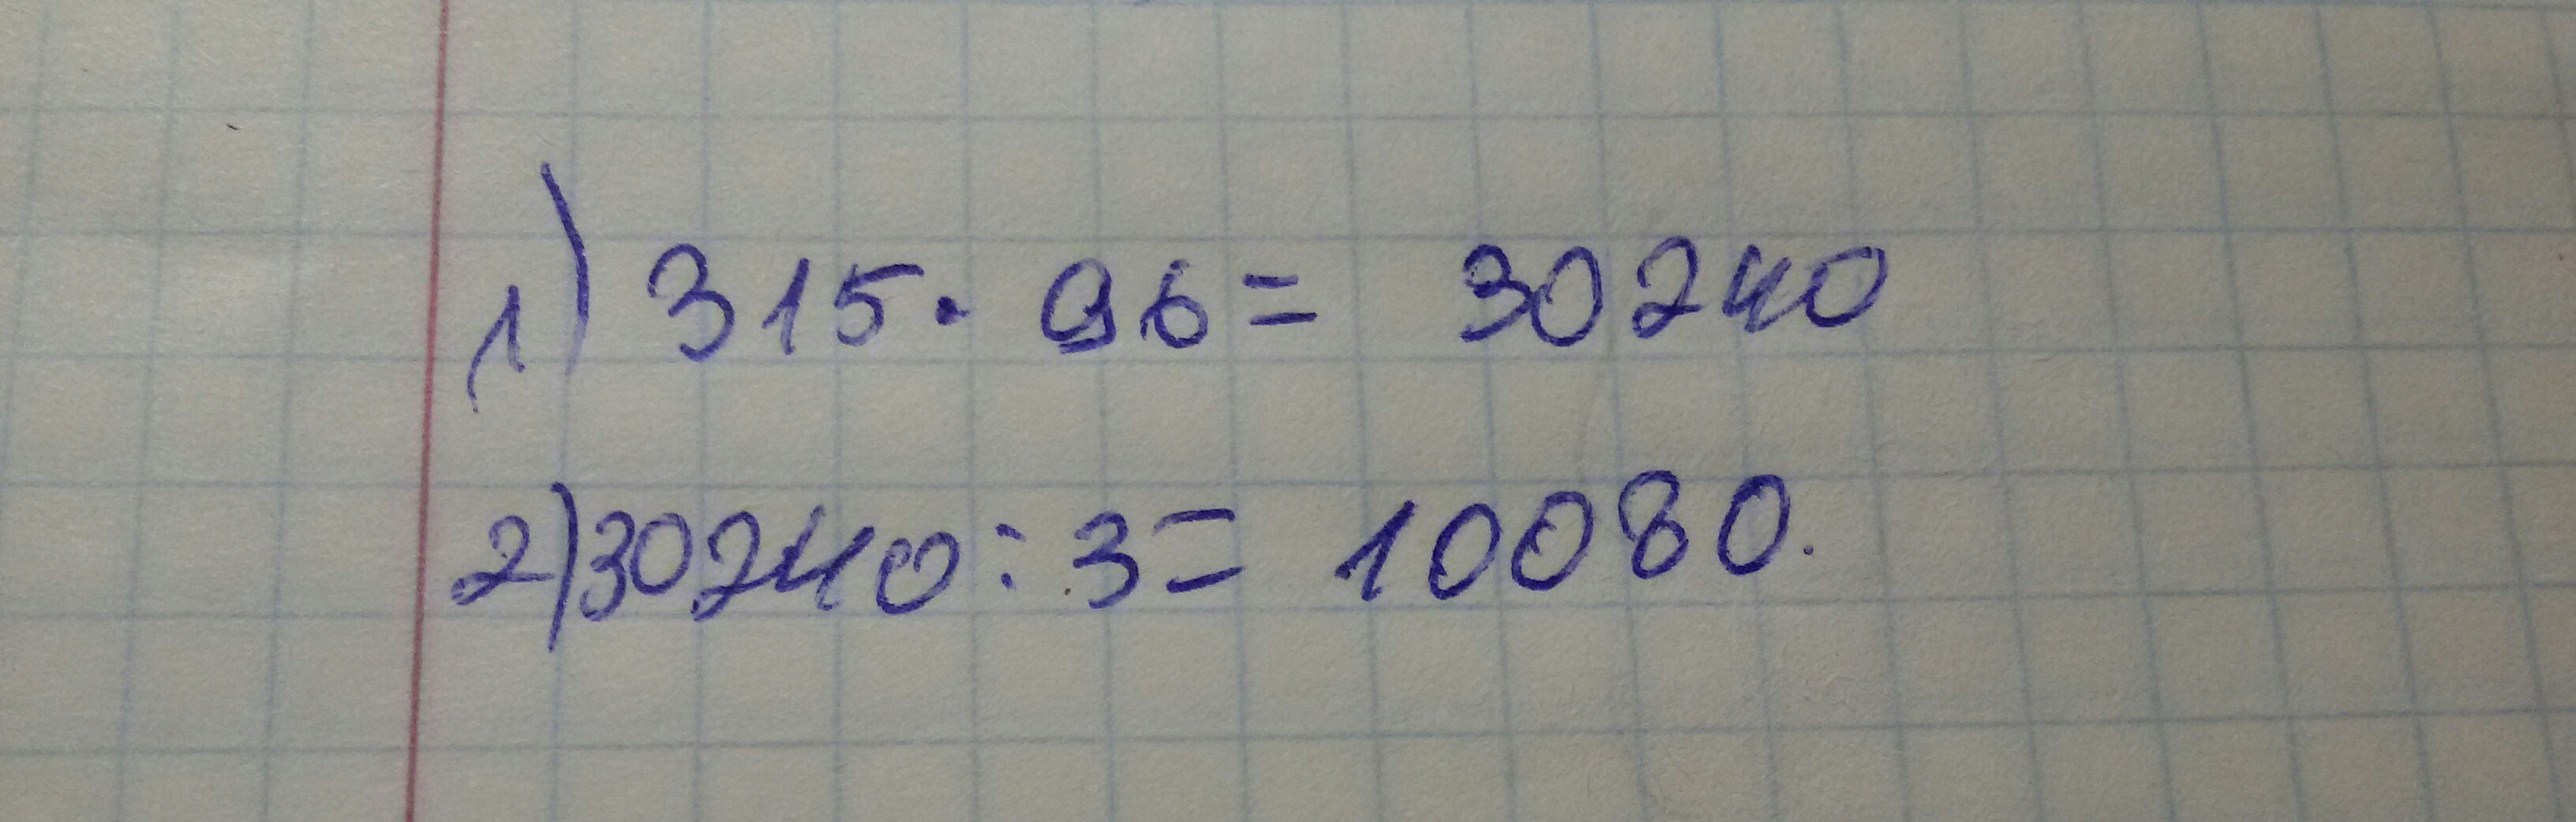 1) 315 · 96 = 30240
2) 30240 : 3 = 10080.